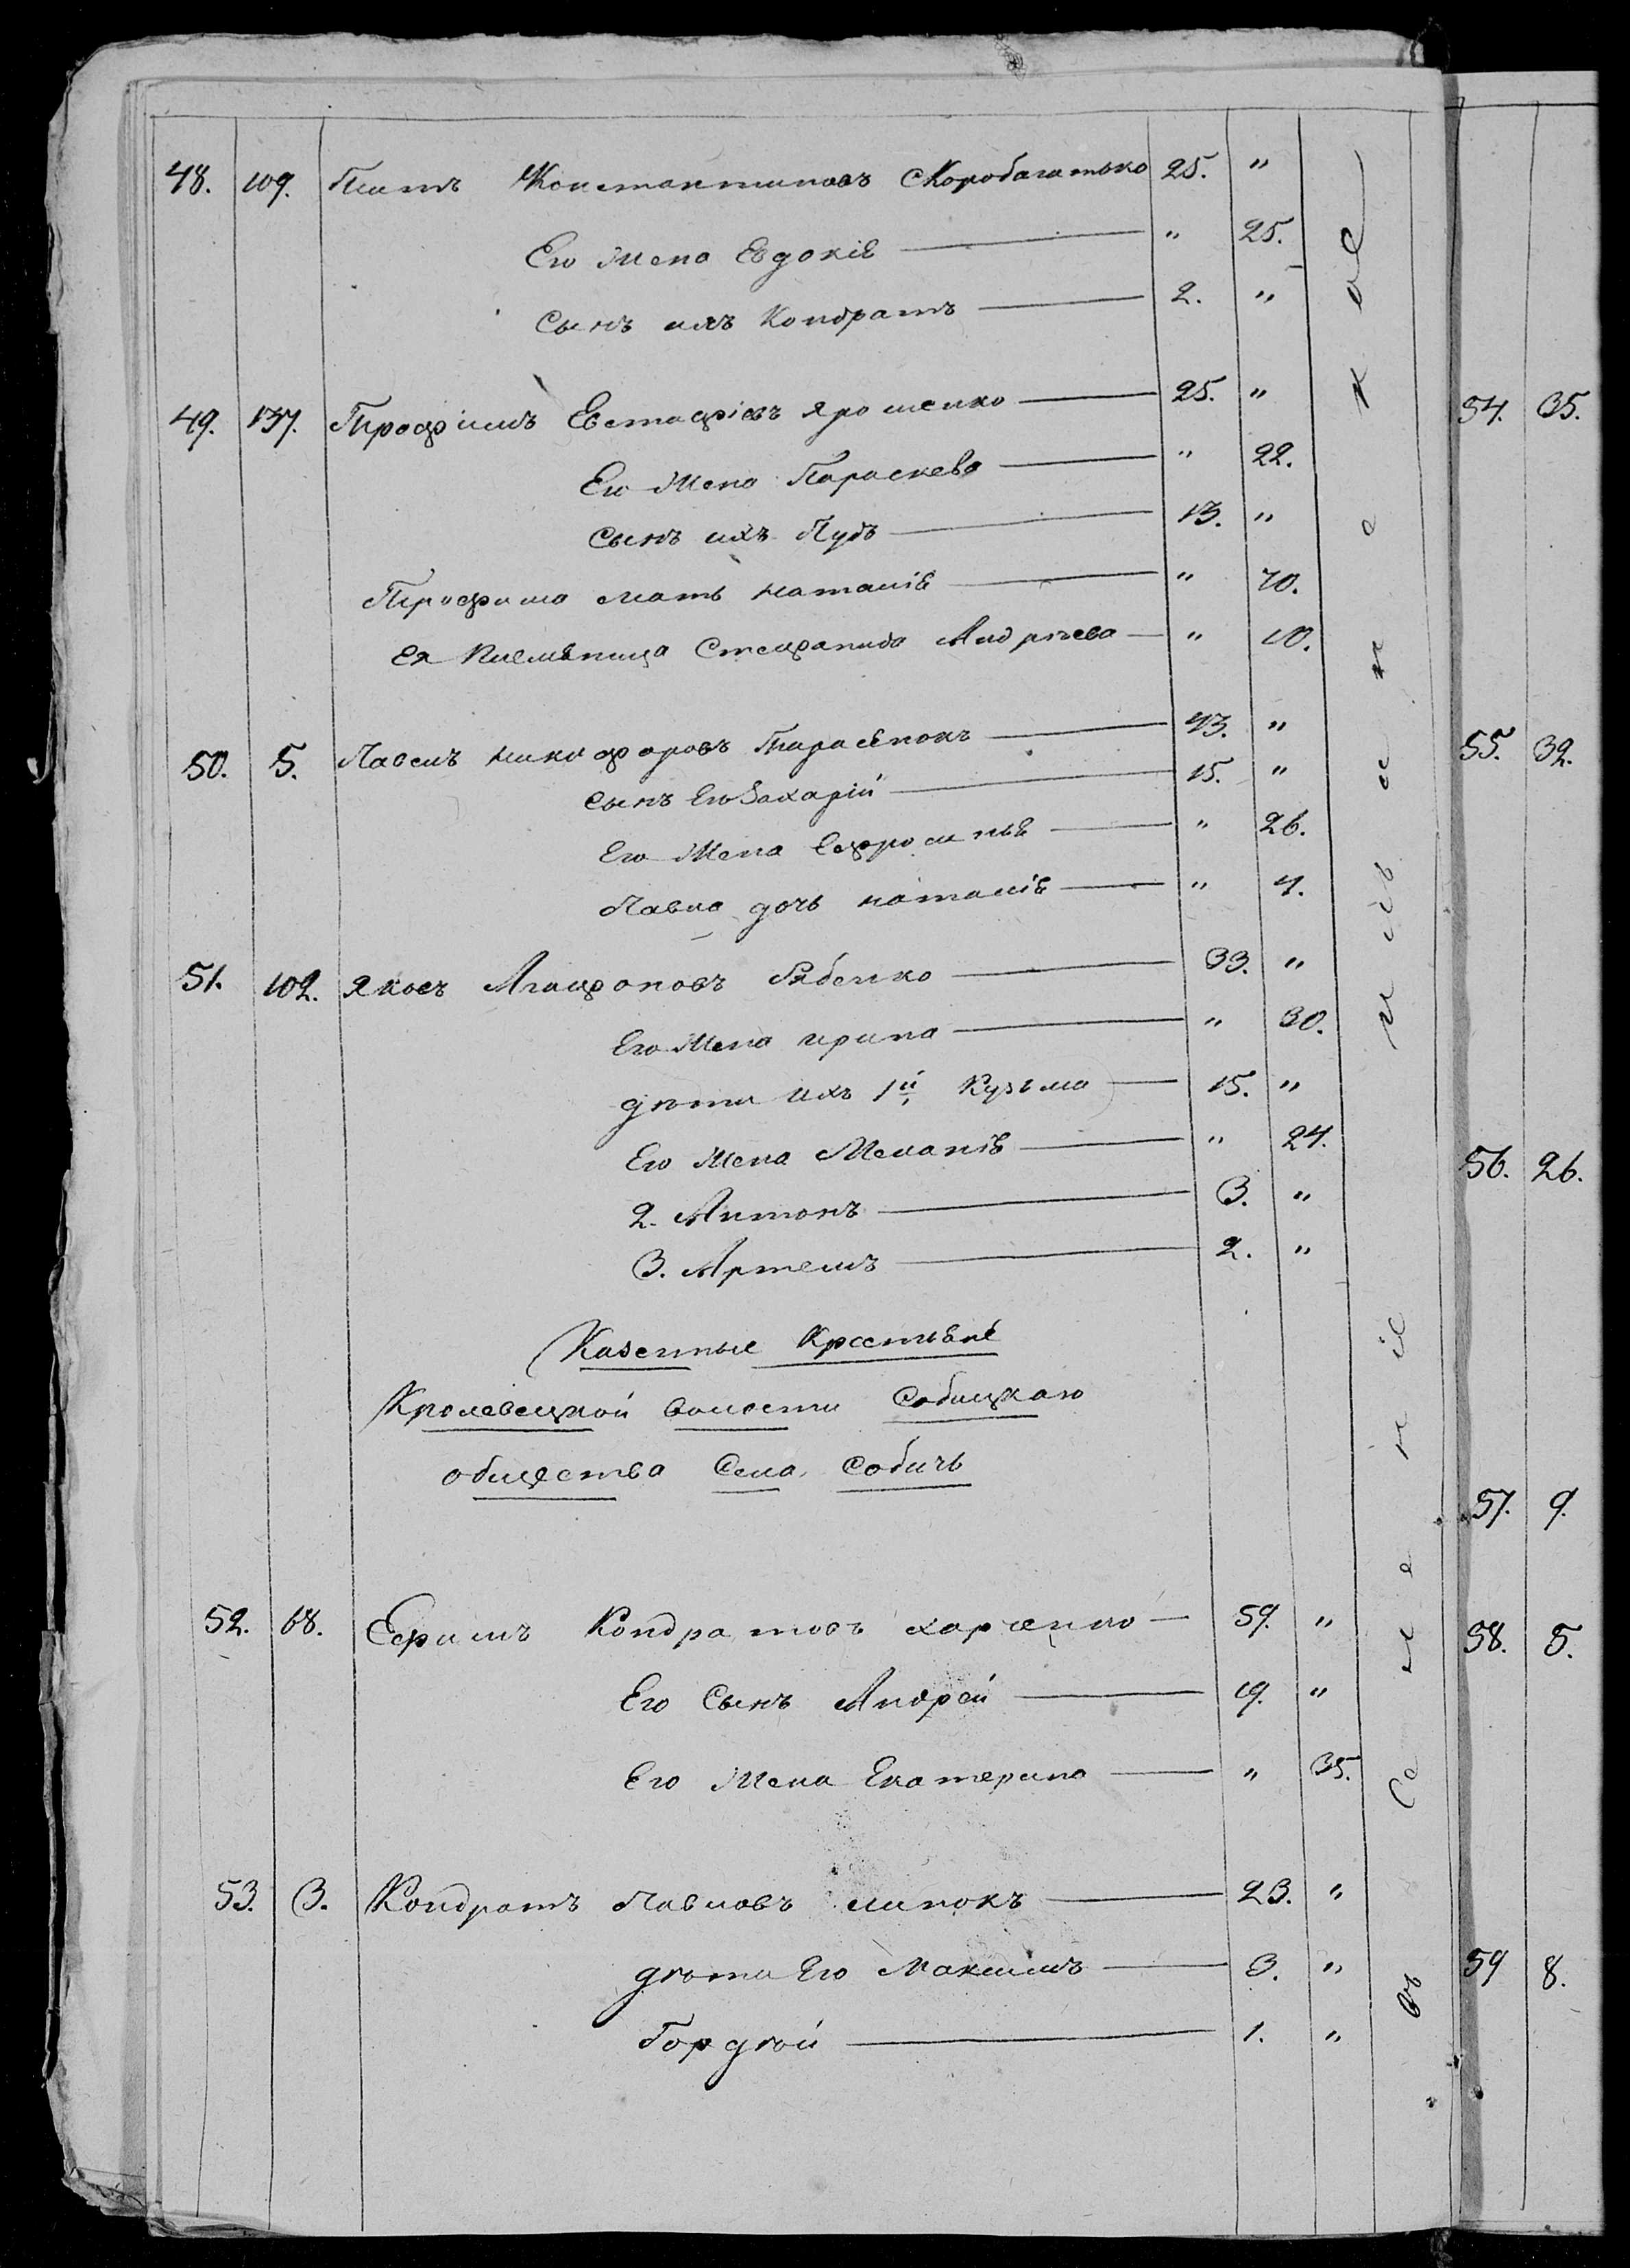 48. 109. Титъ Константиновъ Скоробагатько 25. "
Его Жена Евдокія " 25.
Сынъ ихъ Кондратъ 2. "
49. 137. Трофимъ Евстафіевъ Ярошенко 25. "
Его Жена Параскева " 22.
Сынъ ихъ Пудъ 13. "
Трофима мать Наталія " 70.
Ея племяница Степанида Андрѣева " 10.
50. 5. Павелъ Никифоровъ Тарасенокъ 43. "
Сынъ Его Захарій 15. "
Его Жена Ефросинья " 26.
Павла дочь Наталія " 4.
51. 102. Яковъ Агафоновъ Рябенко 33. "
Его Жена Ирина " 30.
дѣти ихъ 1й, Кузьма 15. "
Его Жена Меланія " 24.
2. Антонъ 3. "
3. Артемъ 2. "
Казенные Крестьяне
Кролевецкой волости Собицкаго
общества Села Собичь
52. 68. Ефимъ Кондратовъ Харченко 59. "
Его Сынъ Андрей 19. "
Его Жена Екатерина " 35.
53. 3. Кондратъ Павловъ Линокъ 23. "
дѣти Его Максимъ 3. "
Гордѣй 1. "
въ Селеніе
54. 35.
55. 32.
56. 26.
57. 9.
58. 5.
59 8.